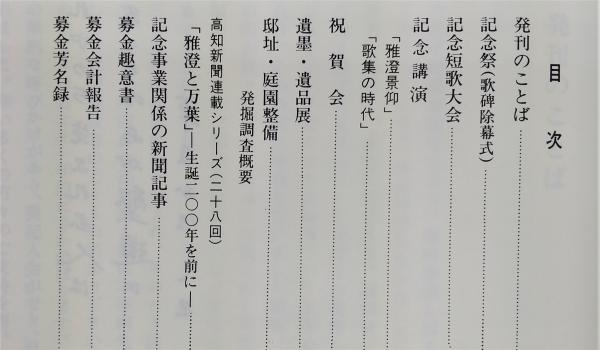 目次
発刊のことば
記念祭(歌碑除幕式)
記念短歌大会
記念講演
「雅澄景仰」
「歌集の時代」
祝賀会
遺墨・遺品展
邸址・庭園整備
発掘調査概要
高知新聞連載シリーズ(二十八回)
「雅澄と万葉」―生誕二〇〇年を前に―
記念事業関係の新聞記事
募金趣意書
募金会計報告
募金芳名録